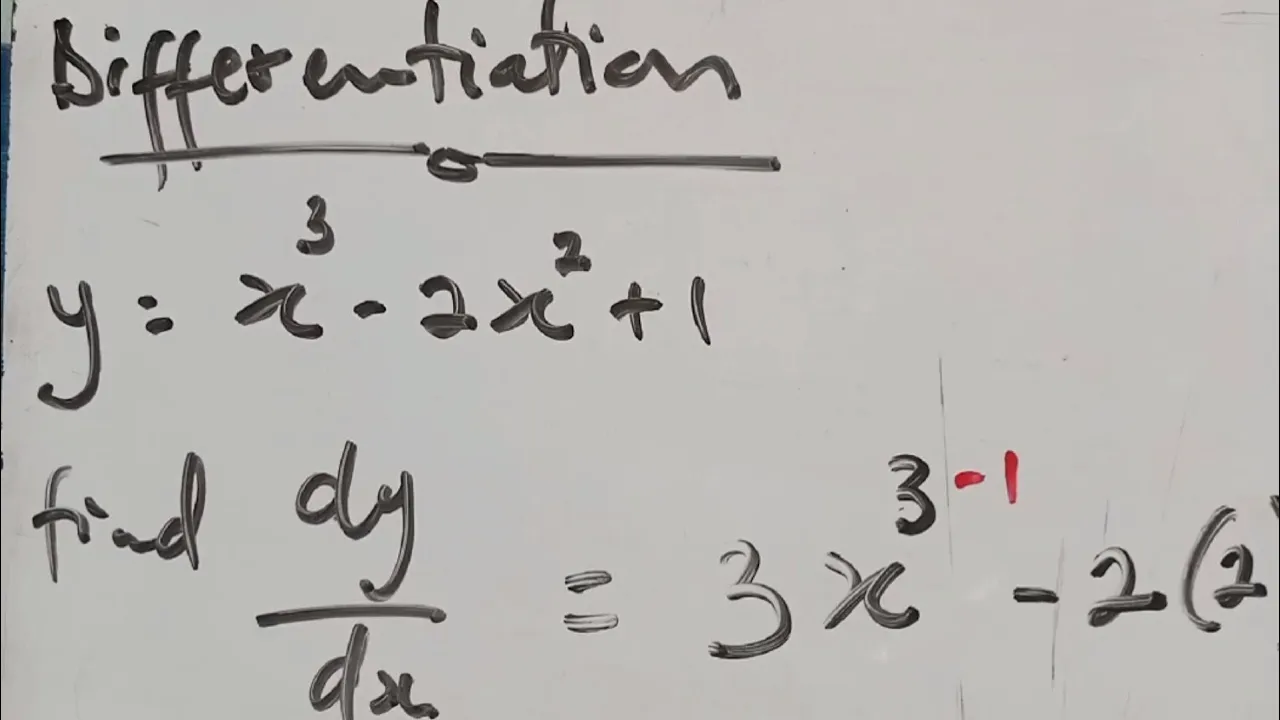 Differentiation
y = x³ - 2x² + 1
find dy/dx = 3x³⁻¹ - 2(2